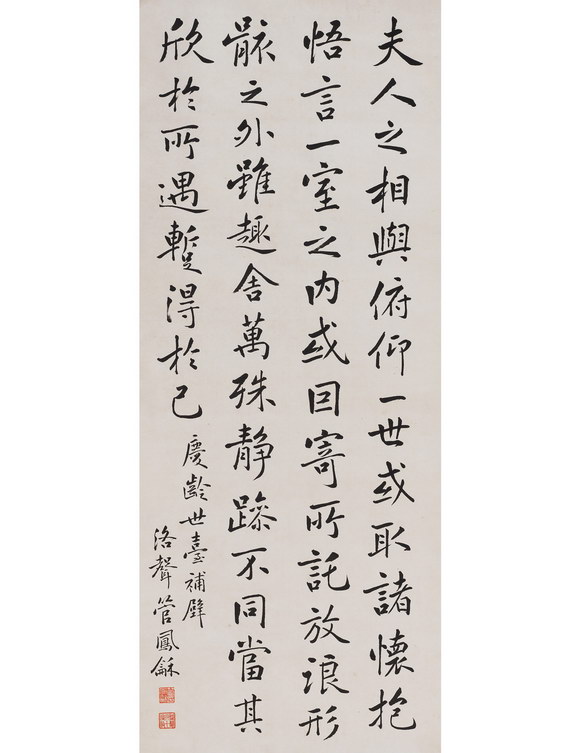 夫人之相與俯仰一世或取諸懷抱
悟言一室之内或囙寄所託放浪形
骸之外雖趣舍萬殊静躁不同當其
欣於所遇蹔得於己
慶齡世臺補壁
洛聲管鳳龢